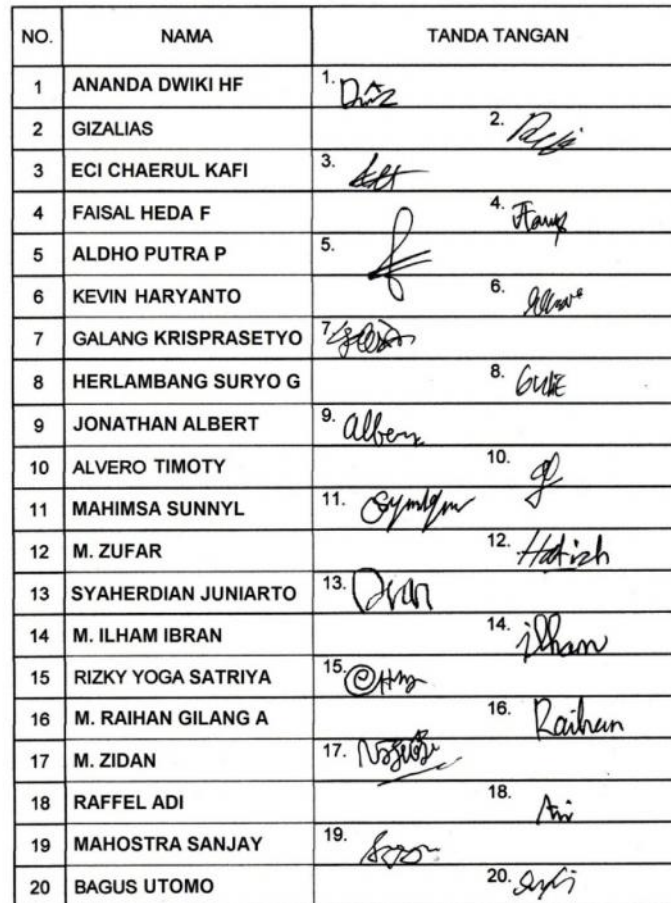 NO. NAMA TANDA TANGAN
1 ANANDA DWIKI HF 1.
2 GIZALIAS 2.
3 ECI CHAERUL KAFI 3.
4 FAISAL HEDA F 4.
5 ALDHO PUTRA P 5.
6 KEVIN HARYANTO 6.
7 GALANG KRISPRASETYO 7
8 HERLAMBANG SURYO G 8.
9 JONATHAN ALBERT 9. Albert
10 ALVERO TIMOTY 10.
11 MAHIMSA SUNNYL 11.
12 M. ZUFAR 12.
13 SYAHERDIAN JUNIARTO 13.
14 M. ILHAM IBRAN 14. ilham
15 RIZKY YOGA SATRIYA 15.
16 M. RAIHAN GILANG A 16. Raihan
17 M. ZIDAN 17.
18 RAFFEL ADI 18.
19 MAHOSTRA SANJAY 19.
20 BAGUS UTOMO 20.